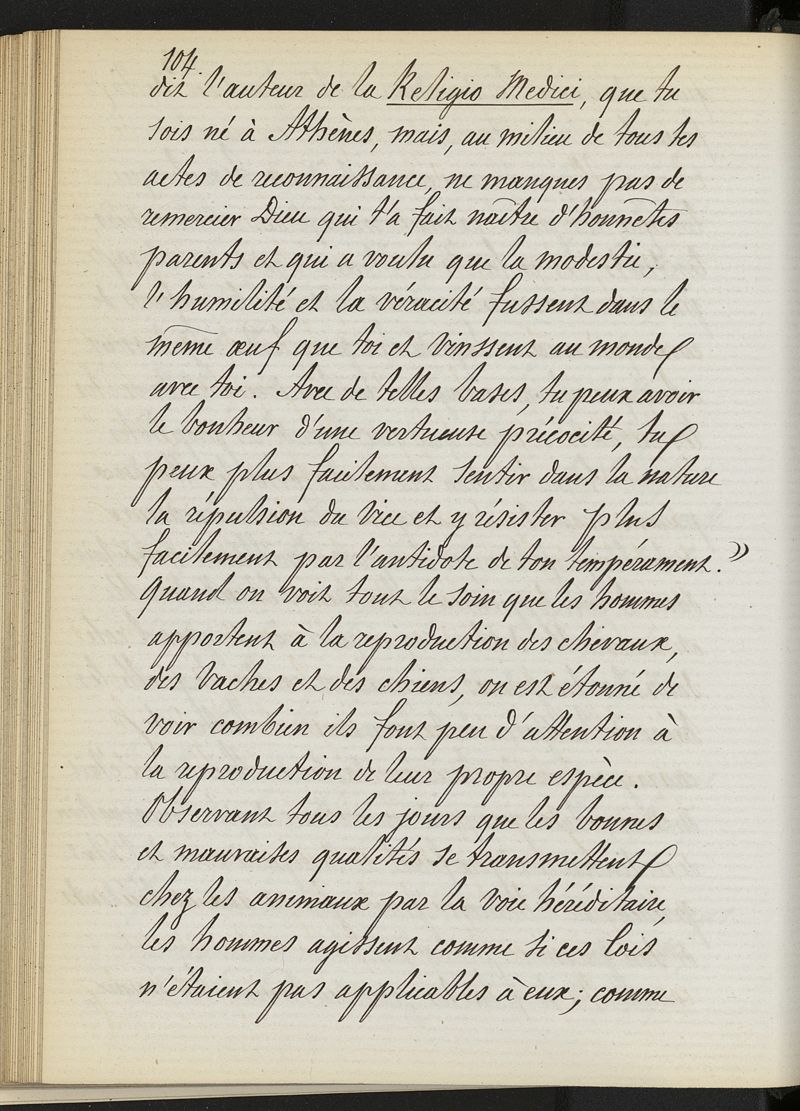 104.
dit l'auteur de la Religio Medici, que tu
sois né à Athènes, mais, au milieu de tous tes
actes de reconnaissance, ne manques pas de
remercier Dieu qui t'a fait naître d'honnêtes
parents et qui a voulu que la modestie,
l'humilité et la véracité fussent dans le
même œuf que toi et vinssent au monde
avec toi. Avec de telles bases, tu peux avoir
le bonheur d'une vertueuse précocité, tu
peux plus facilement sentir dans la nature
la répulsion du vice et y résister plus
facilement par l'antidote de ton tempérament."
Quand on voit tout le soin que les hommes
apportent à la reproduction des chevaux,
des vaches et des chiens, on est étonné de
voir combien ils font peu d'attention à
la reproduction de leur propre espèce.
Observant tous les jours que les bonnes
et mauvaises qualités se transmettent
chez les animaux par la voie héréditaire,
les hommes agissent comme si ces lois
n'étaient pas applicables à eux; comme